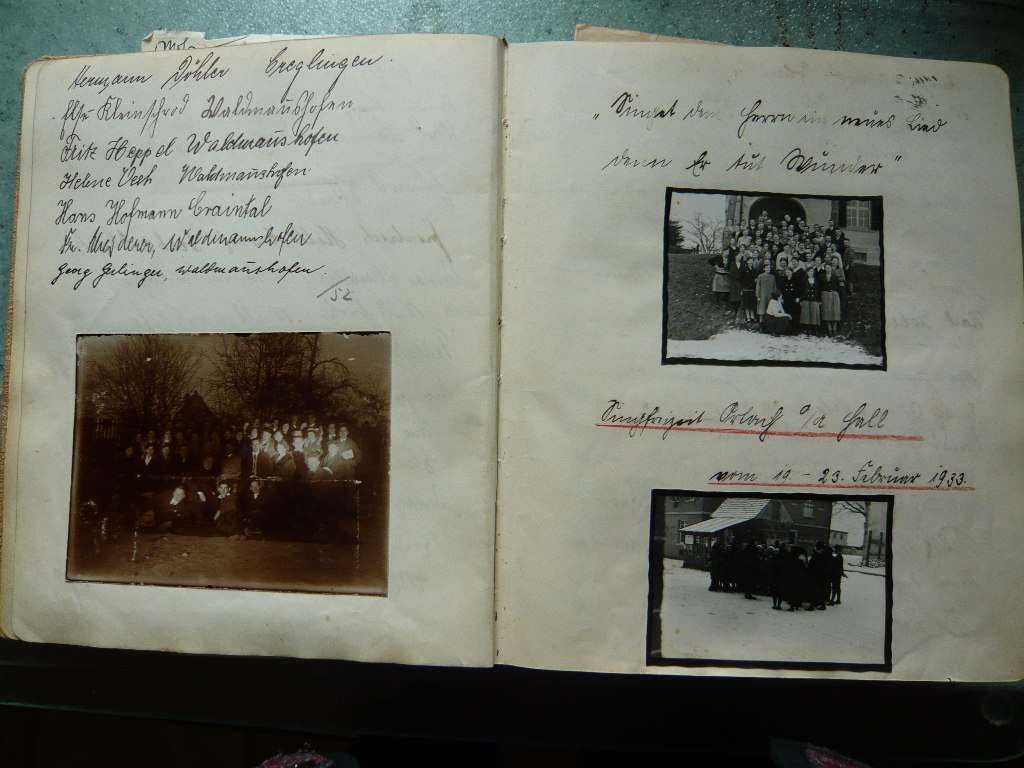 Hermann Döhler Creglingen.
Else Kleinschrod Waldmannshofen
Fritz Heppel Waldmannshofen
Helene Veeh Waldmannshofen
Hans Hofmann Craintal
Fr. Waldmannshofen
Georg Gerlinger, Waldmannshofen.
/52
„Singet dem Herrn ein neues Lied
denn Er tut Wunder"
Singfreizeit Orlach o/a Hall
vom 19. – 23. Februar 1933.